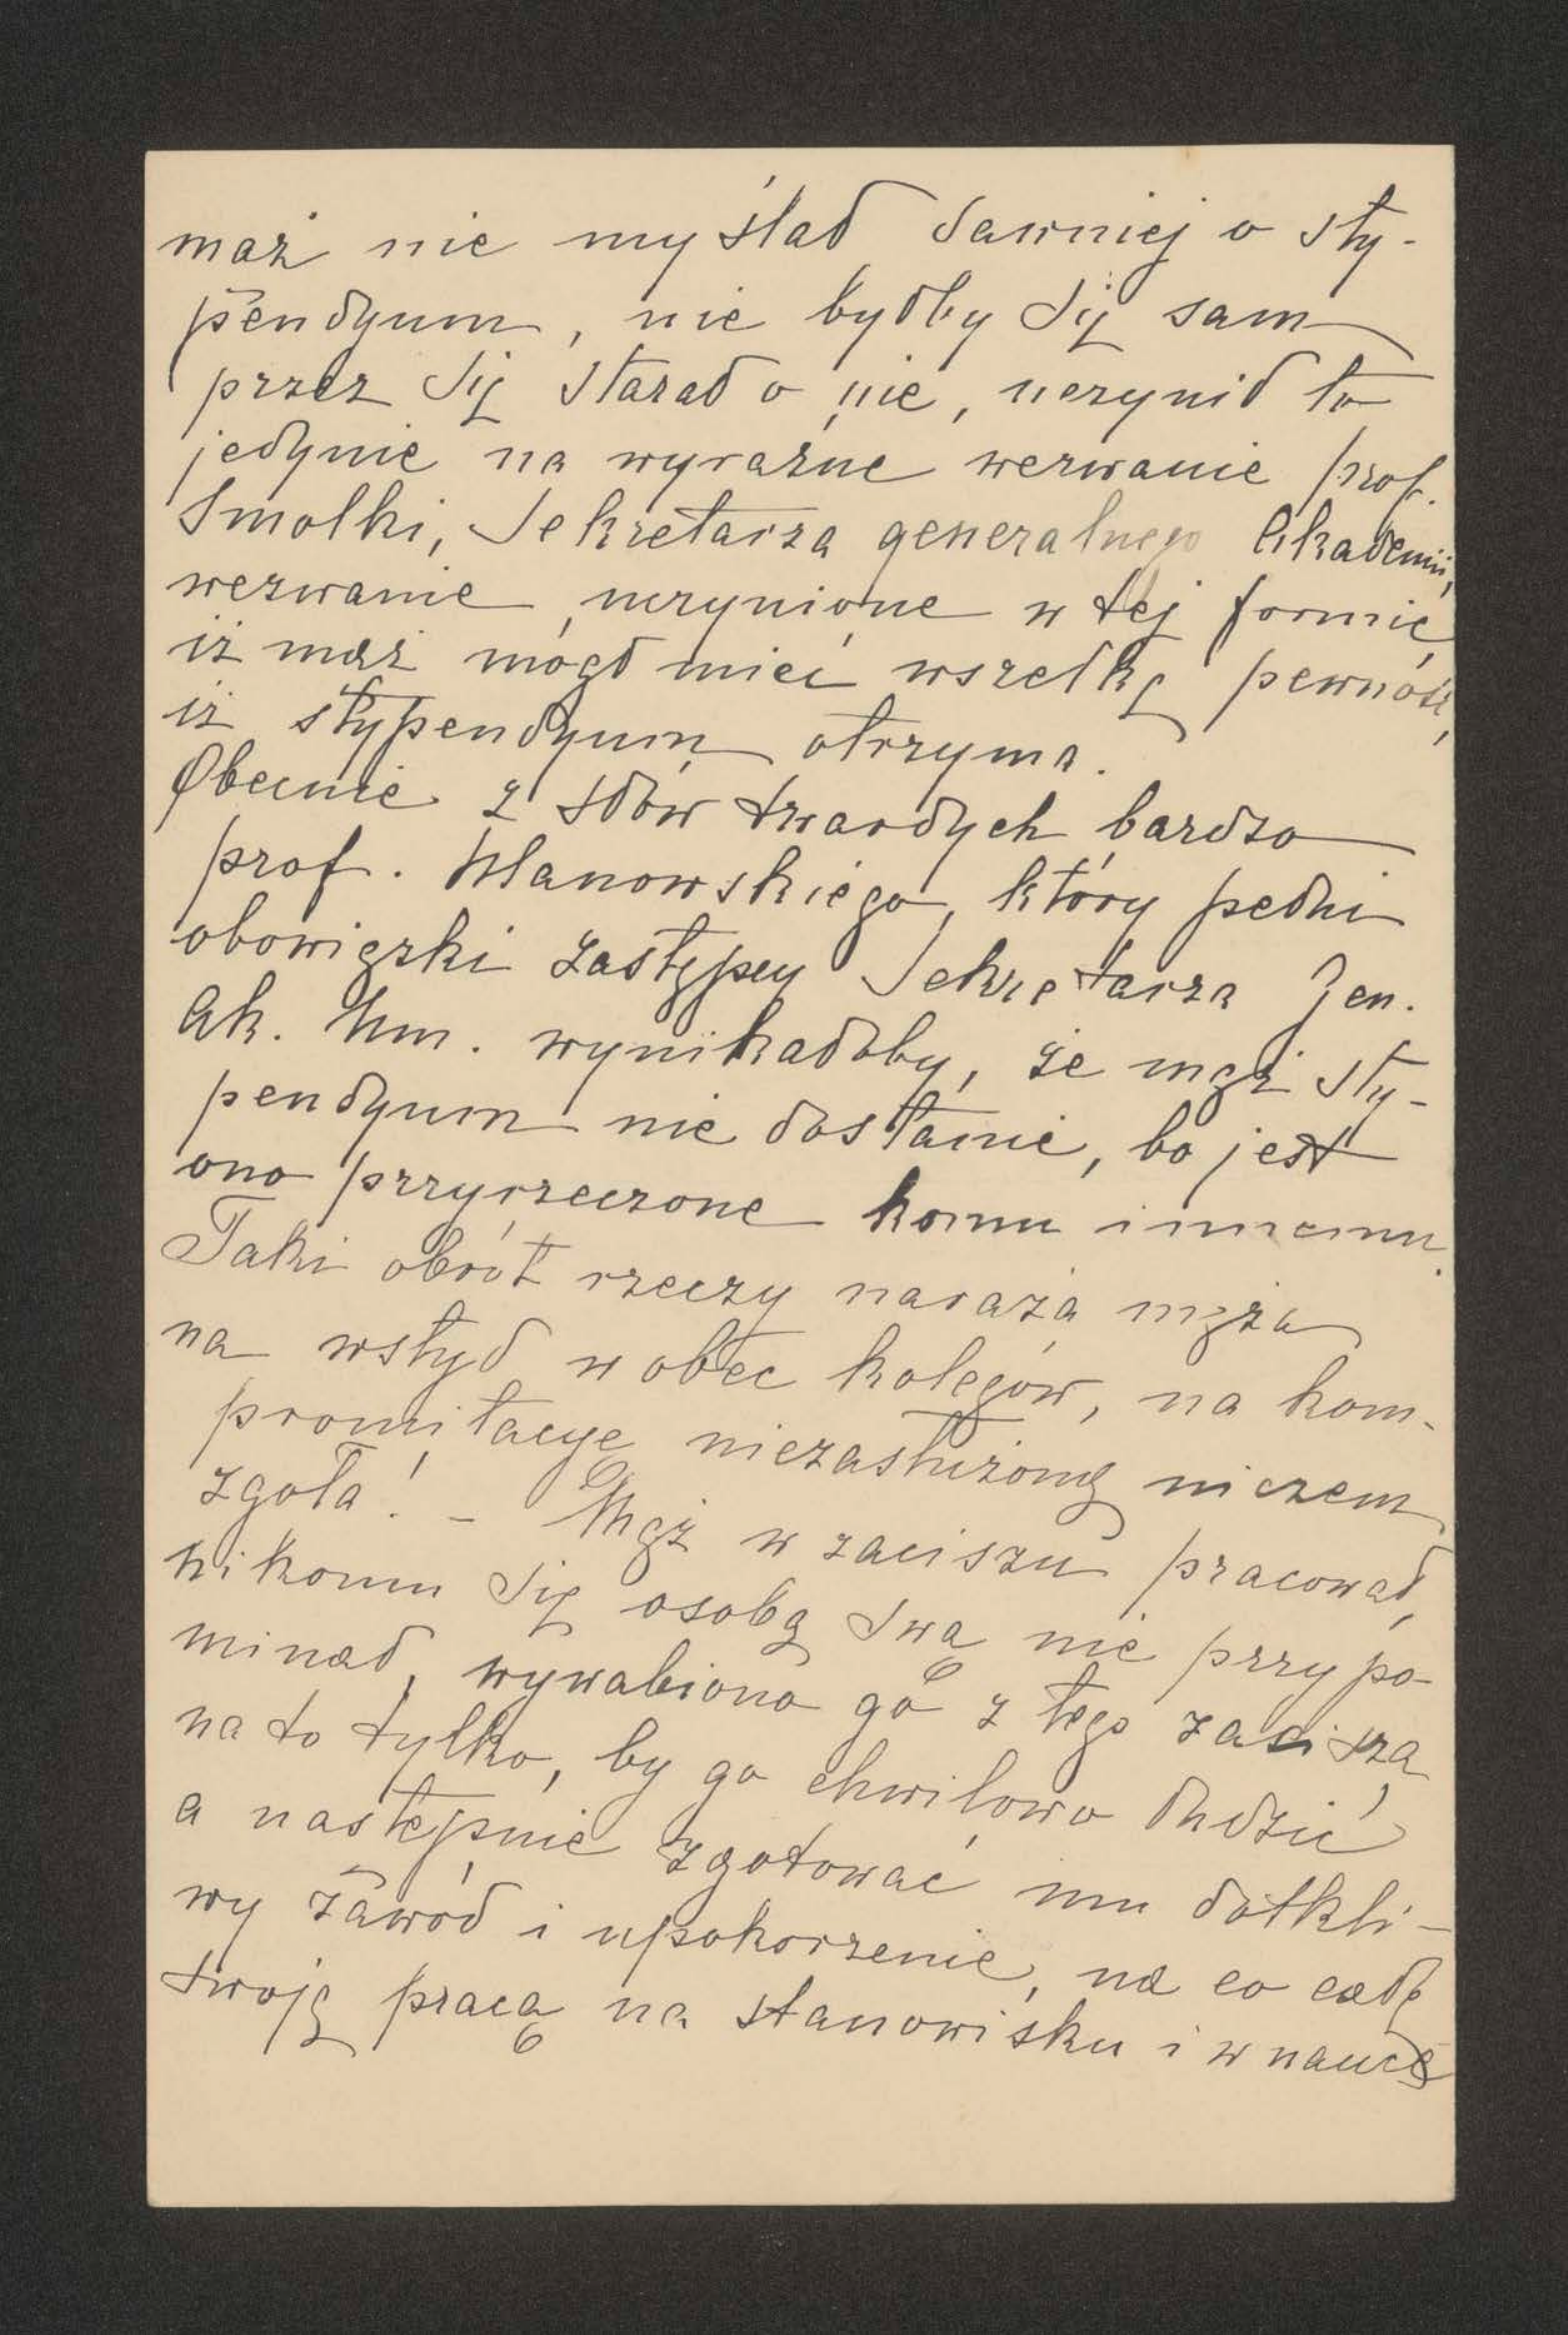 mąż nie myślał dawniej o sty-
pendyum, nie byłby się sam
przez się starał o nie, uczynił to
jedynie na wyraźne wezwanie prof.
Smolki, Sekretarza generalnego Akademii,
wezwanie, uczynione w tej formie,
iż mąż mógł mieć wszelką pewność,
iż stypendyum otrzyma.
Obecnie z słów twardych bardzo
prof. Ulanowskiego, który pełni
obowiązki zastępcy Sekretarza Jen.
Ak. Um. wynikałoby, że mąż sty-
pendyum nie dostanie, bo jest
ono przyrzeczone komu innemu.
Taki obrót rzeczy naraża męża
na wstyd wobec kolegów, na kom-
promitacyę niezasłużoną niczem
zgoła! - Mąż w zaciszu pracował,
nikomu się osobą swą nie przypo-
minał, wywabiono go z tego zacisza
na to tylko, by go chwilowo łudzić,
a następnie zgotować mu dotkli-
wy zawód i upokorzenie, na co całą
swoją pracą na stanowisku i w nauce